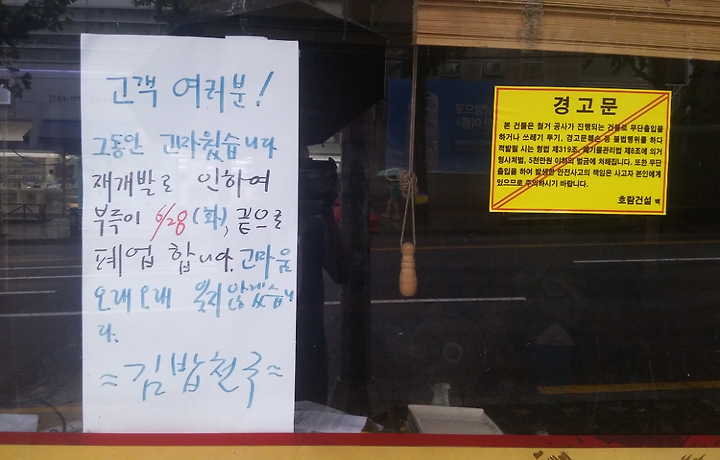 고객 여러분!
그동안 고마웠습니다
재개발로 인하여
부득이 6/28 (화), 끝으로
폐업 합니다. 고마움
오래오래 잊지 않겠습니
다.
≈김밥천국≈
경고문
본 건물은 철거 공사가 진행되는 건물로 무단출입을
하거나 쓰레기 투기, 경고문훼손 등 불법행위를 하다
적발될 시는 형법 제319조, 폐기물관리법 제8조에 의거
형사처벌, 5천만원 이하의 벌금에 처해집니다. 또한 무단
출입을 하여 발생한 안전사고의 책임은 사고자 본인에게
있으므로 주의하시기 바랍니다.
호람건설 백